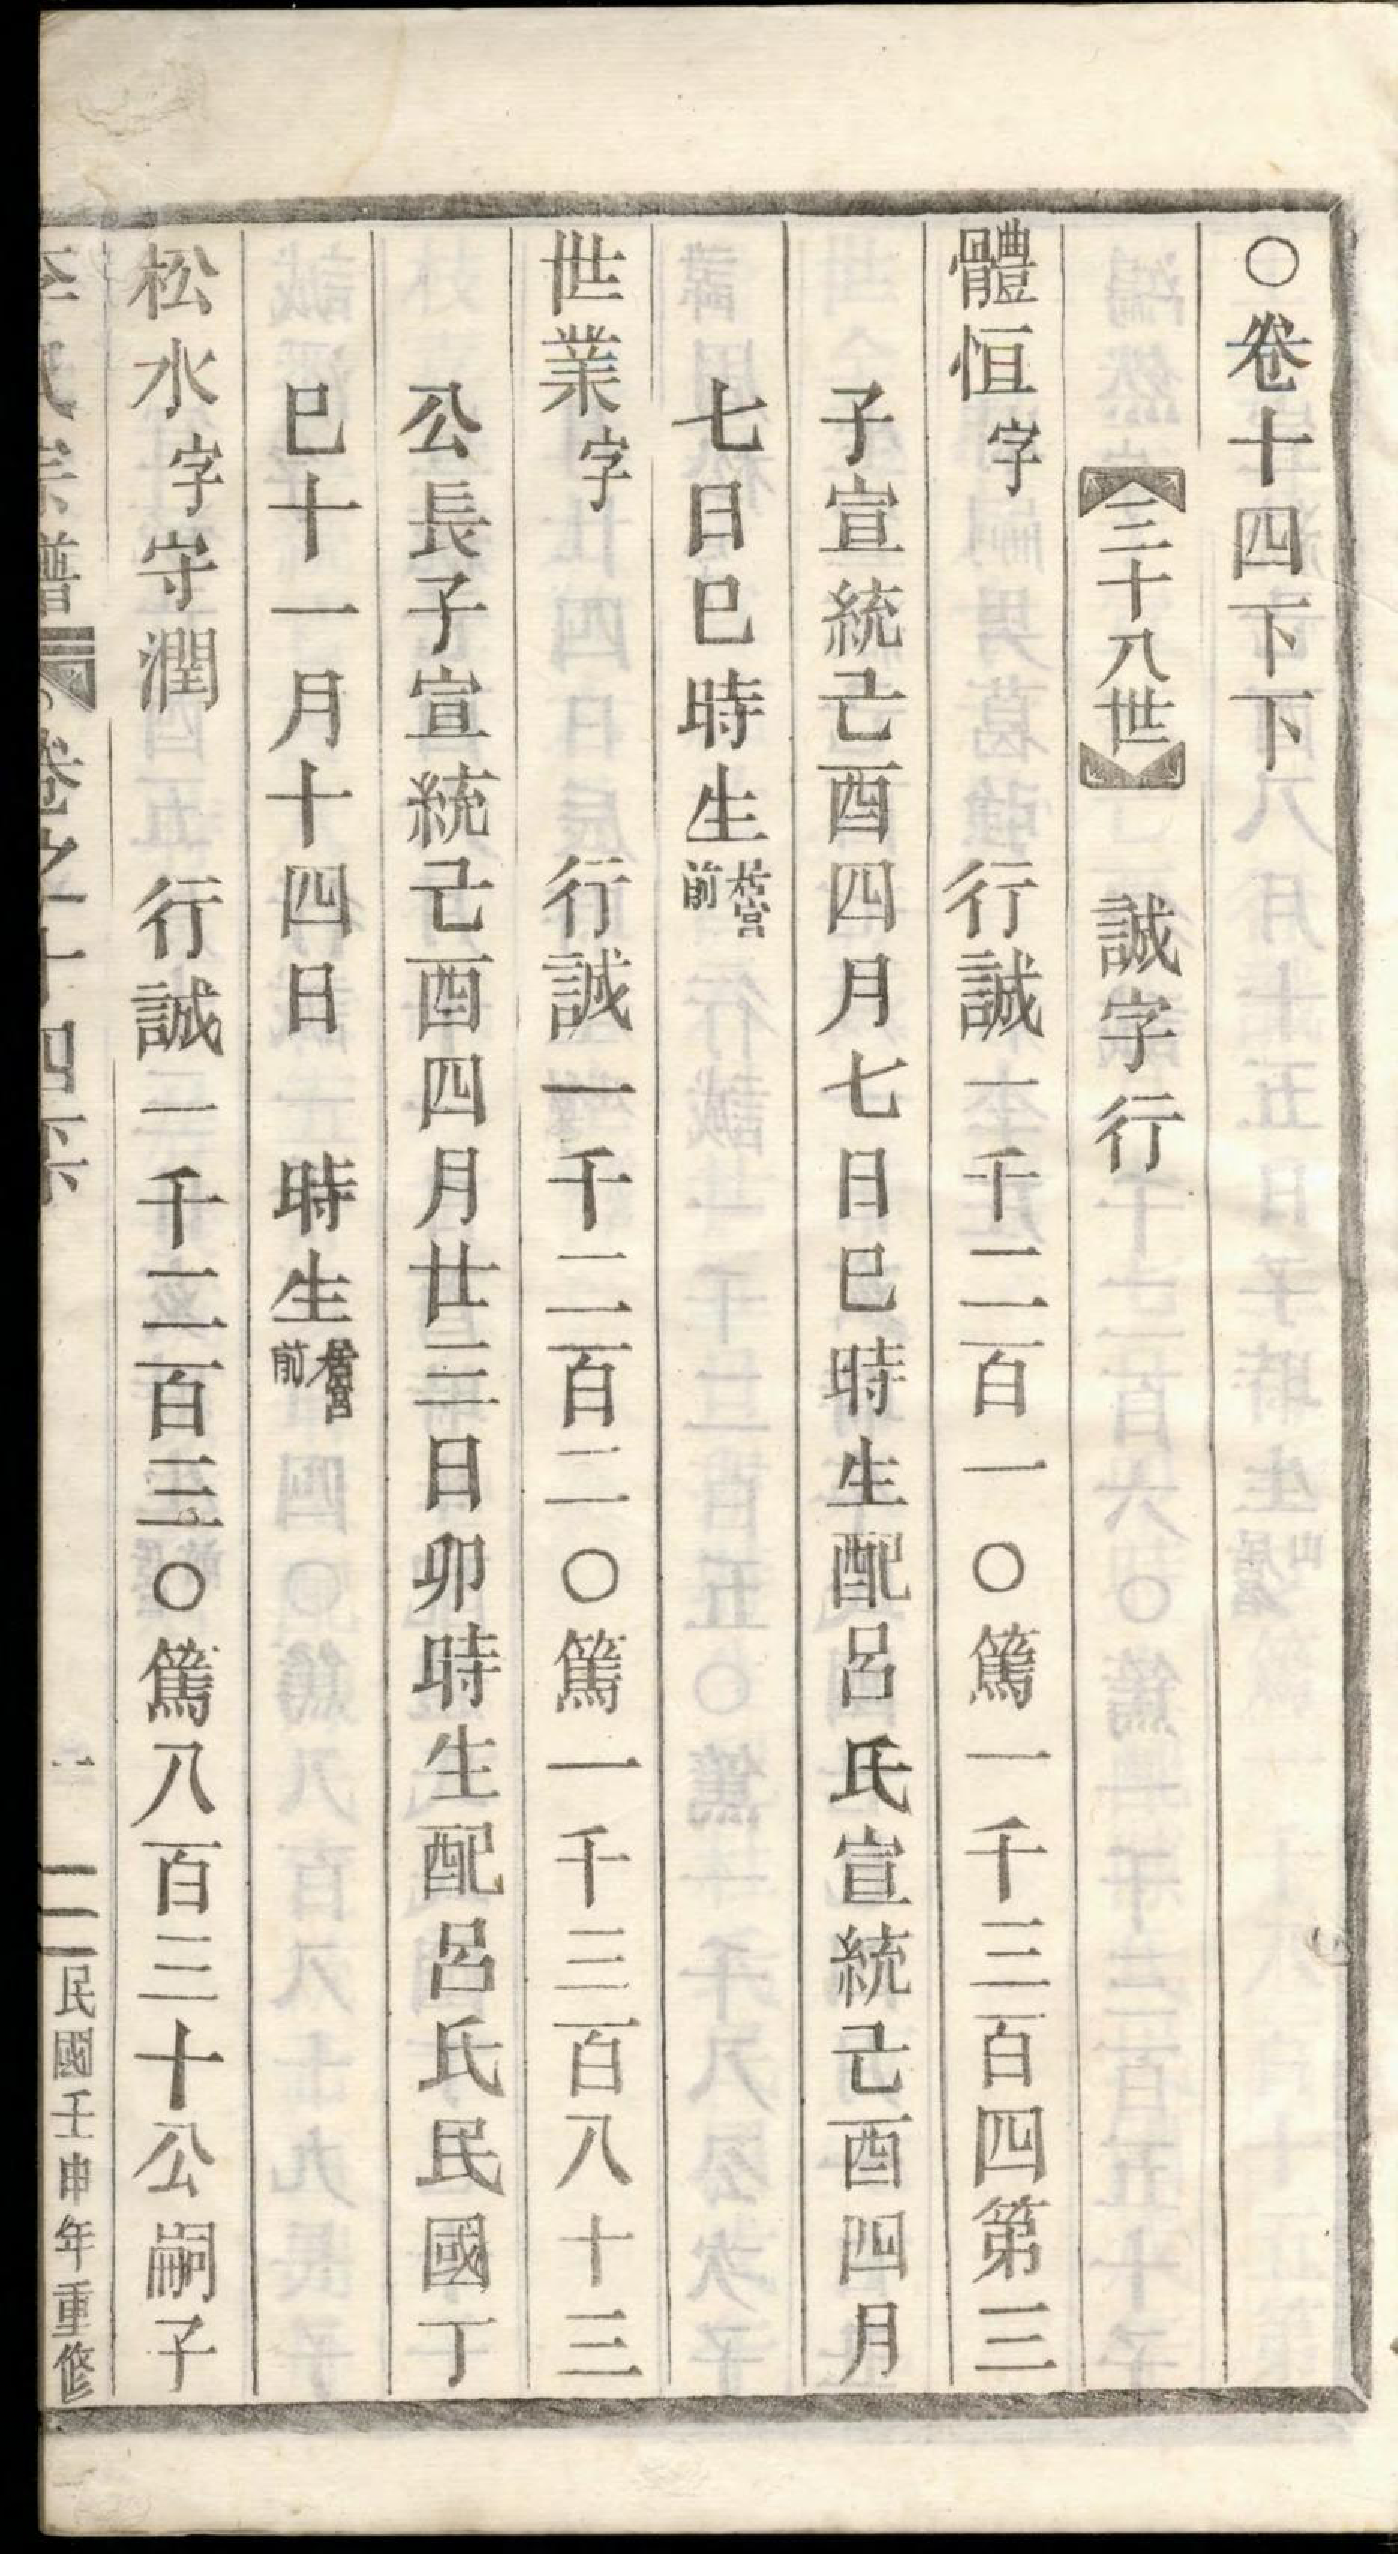 ○卷十四下下
三十八世 誠字行
體恒字 行誠一千二百一○篤一千三百四第三
子宣統己酉四月七日巳時生配呂氏宣統己酉四月
七日巳時生居營前
世業字 行誠一千二百二○篤一千三百八十三
公長子宣統己酉四月廿三日卯時生配呂氏民國丁
巳十一月十四日 時生居營前
松水字守潤 行誠一千二百三○篤八百三十公嗣子
李氏宗譜 卷之十四下下 二 民國壬申年重修